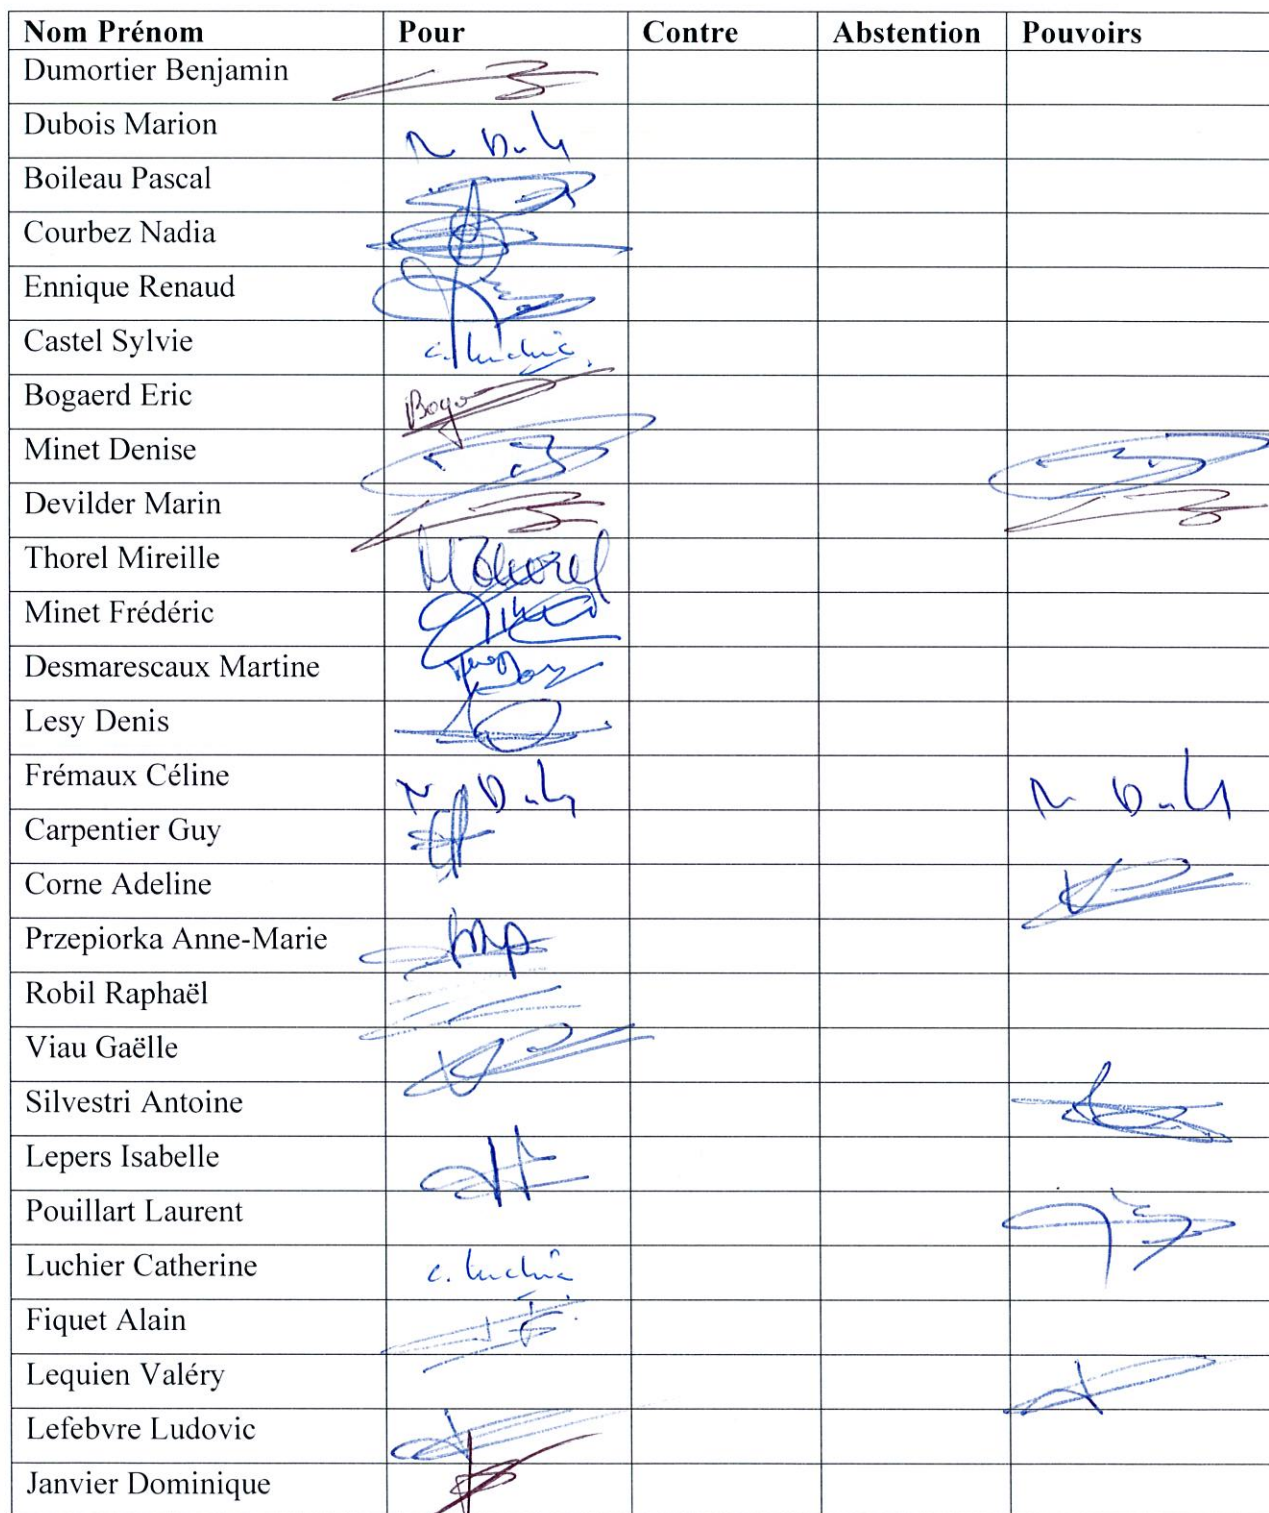 Nom Prénom Pour Contre Abstention Pouvoirs
Dumortier Benjamin
Dubois Marion
Boileau Pascal
Courbez Nadia
Ennique Renaud
Castel Sylvie c. Luchie
Bogaerd Eric Boga
Minet Denise
Devilder Marin
Thorel Mireille MThorel
Minet Frédéric
Desmarescaux Martine
Lesy Denis
Frémaux Céline
Carpentier Guy
Corne Adeline
Przepiorka Anne-Marie AMP
Robil Raphaël
Viau Gaëlle
Silvestri Antoine
Lepers Isabelle
Pouillart Laurent
Luchier Catherine c. Luchie
Fiquet Alain
Lequien Valéry
Lefebvre Ludovic
Janvier Dominique